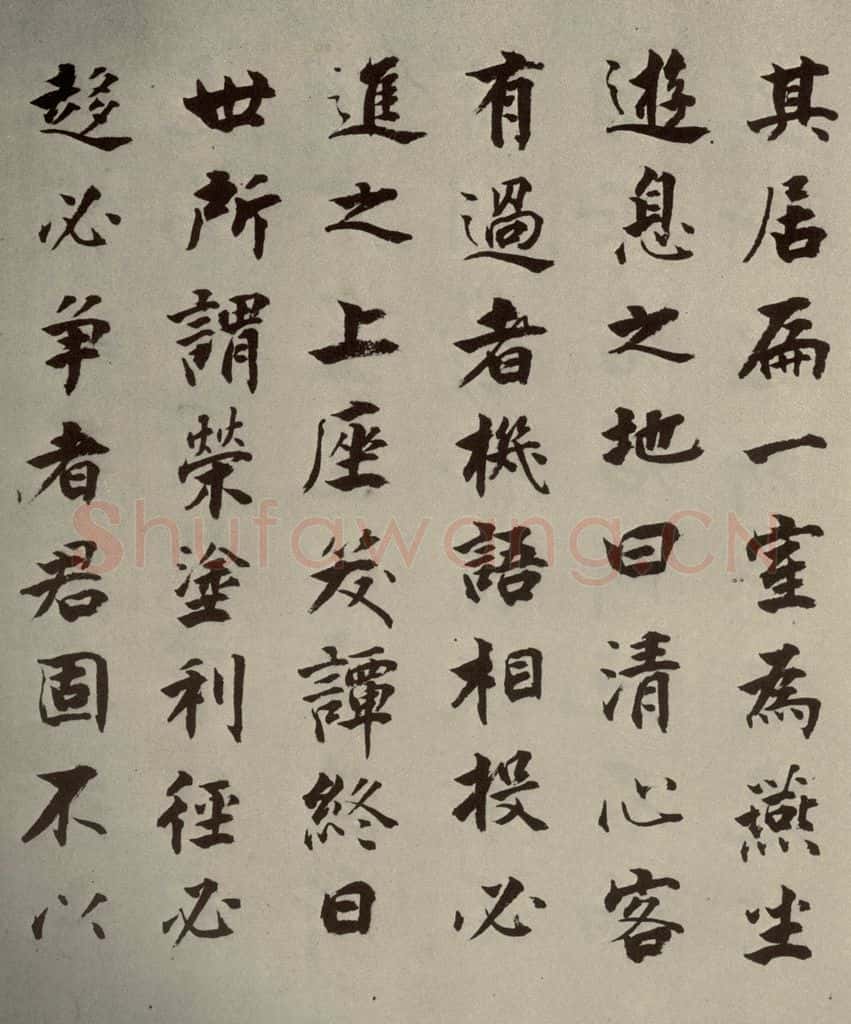 其居扁一室為燕坐
遊息之地曰清心客
有過者機語相投必
進之上座笑譚終日
世所謂榮塗利徑必
趍必爭者君固不以
Shufawang.CN